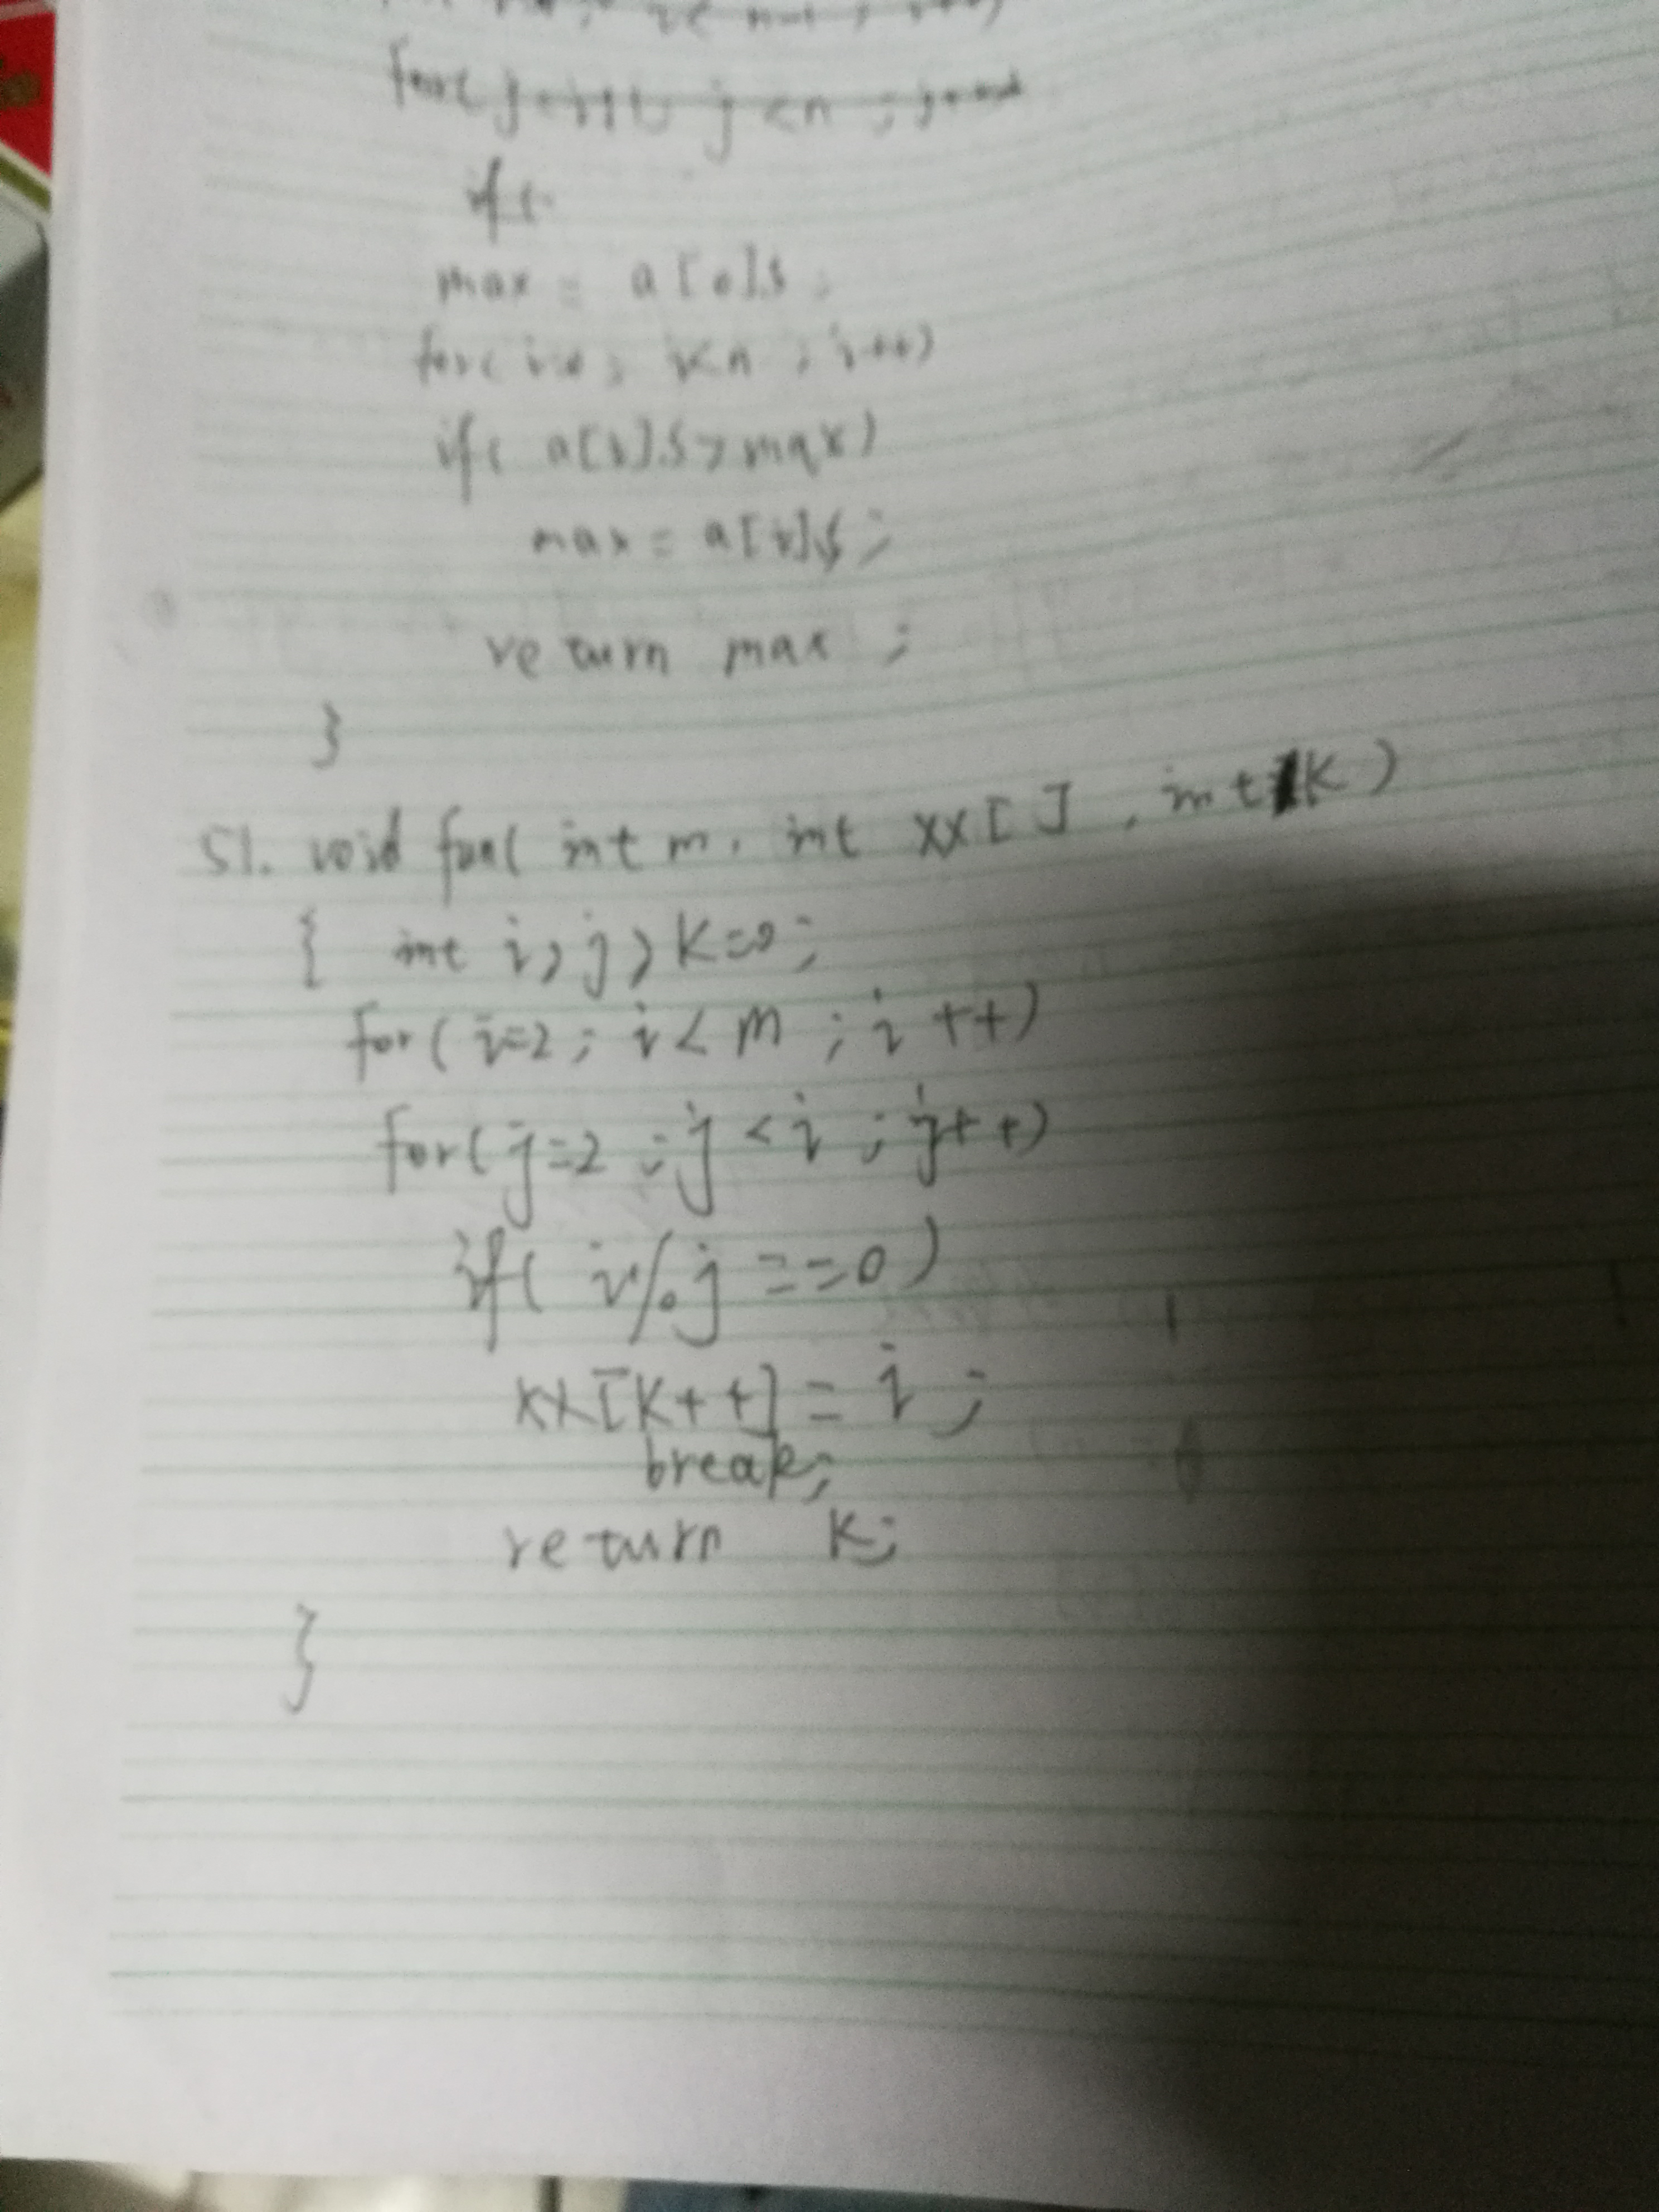 for(j=i+1; j<n; j++)
if(
max = a[0].s;
for(i=0; i<n; i++)
if( a[i].s>max)
max = a[i].s;
return max ;
}
51. void fun( int m, int xx[ ] , int K )
{ int i, j, K=0;
for( i=2; i< m ; i ++)
for( j=2 ; j < i ; j++)
if( i%j ==0 )
xx[K++] = i ;
break;
return K;
}